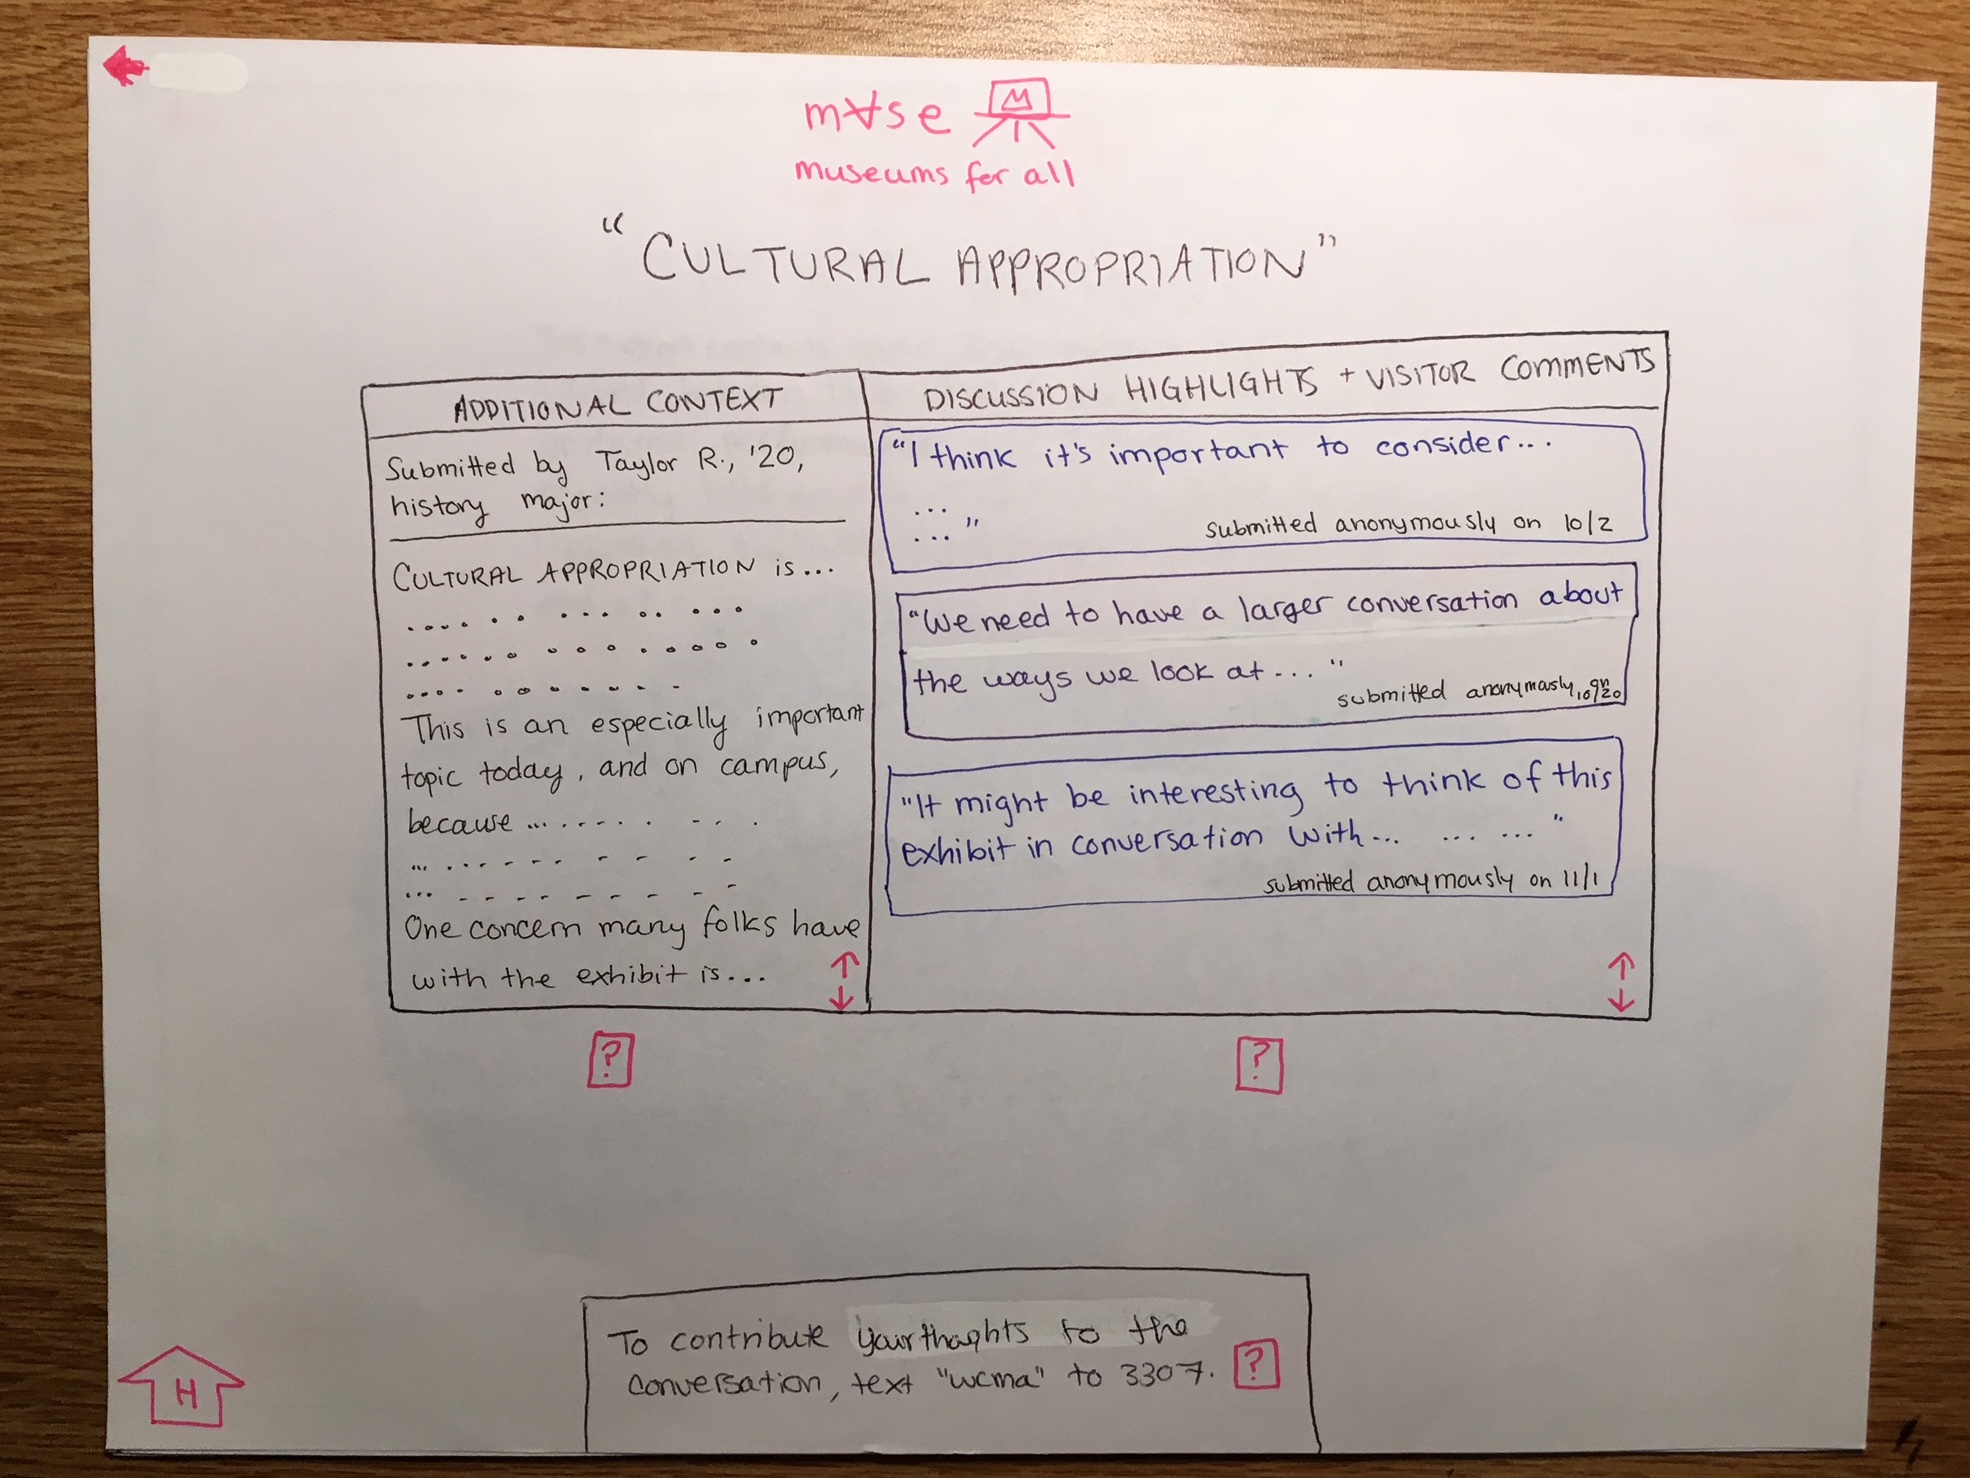 m∀se M
museums for all
"CULTURAL APPROPRIATION"
ADDITIONAL CONTEXT
Submitted by Taylor R., '20,
history major:
CULTURAL APPROPRIATION is...
This is an especially important
topic today, and on campus,
because ...
One concern many folks have
with the exhibit is...
?
DISCUSSION HIGHLIGHTS + VISITOR COMMENTS
"I think it's important to consider...
...
... "
submitted anonymously on 10/2
"We need to have a larger conversation about
the ways we look at... "
submitted anonymously, on 10/20
"It might be interesting to think of this
exhibit in conversation with... ... ... "
submitted anonymously on 11/1
?
To contribute your thoghts to the
conversation, text "wcma" to 3307. ?
H